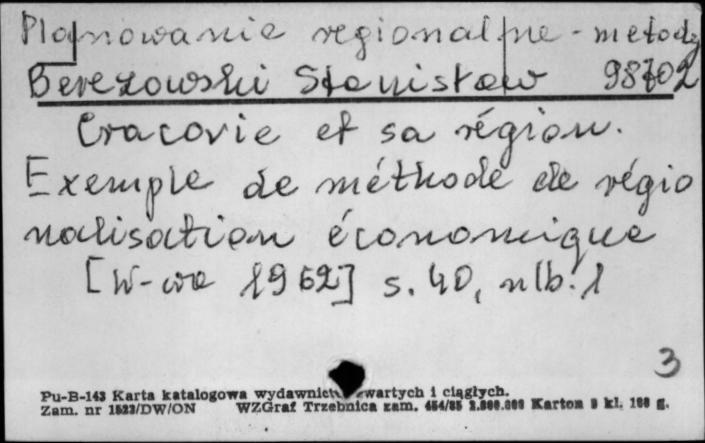 Planowanie regionalne - metody
Berezowski Stanisław 98702
Cracovie et sa région.
Exemple de méthode de régio
nalisation économique
[W-wa 1962] s. 40, nlb. 1
3
Pu-B-143 Karta katalogowa wydawnictw zwartych i ciągłych.
Zam. nr 1523/DW/ON WZGraf Trzebnica zam. 454/85 2.000.000 Karton 3 kl. 180 g.